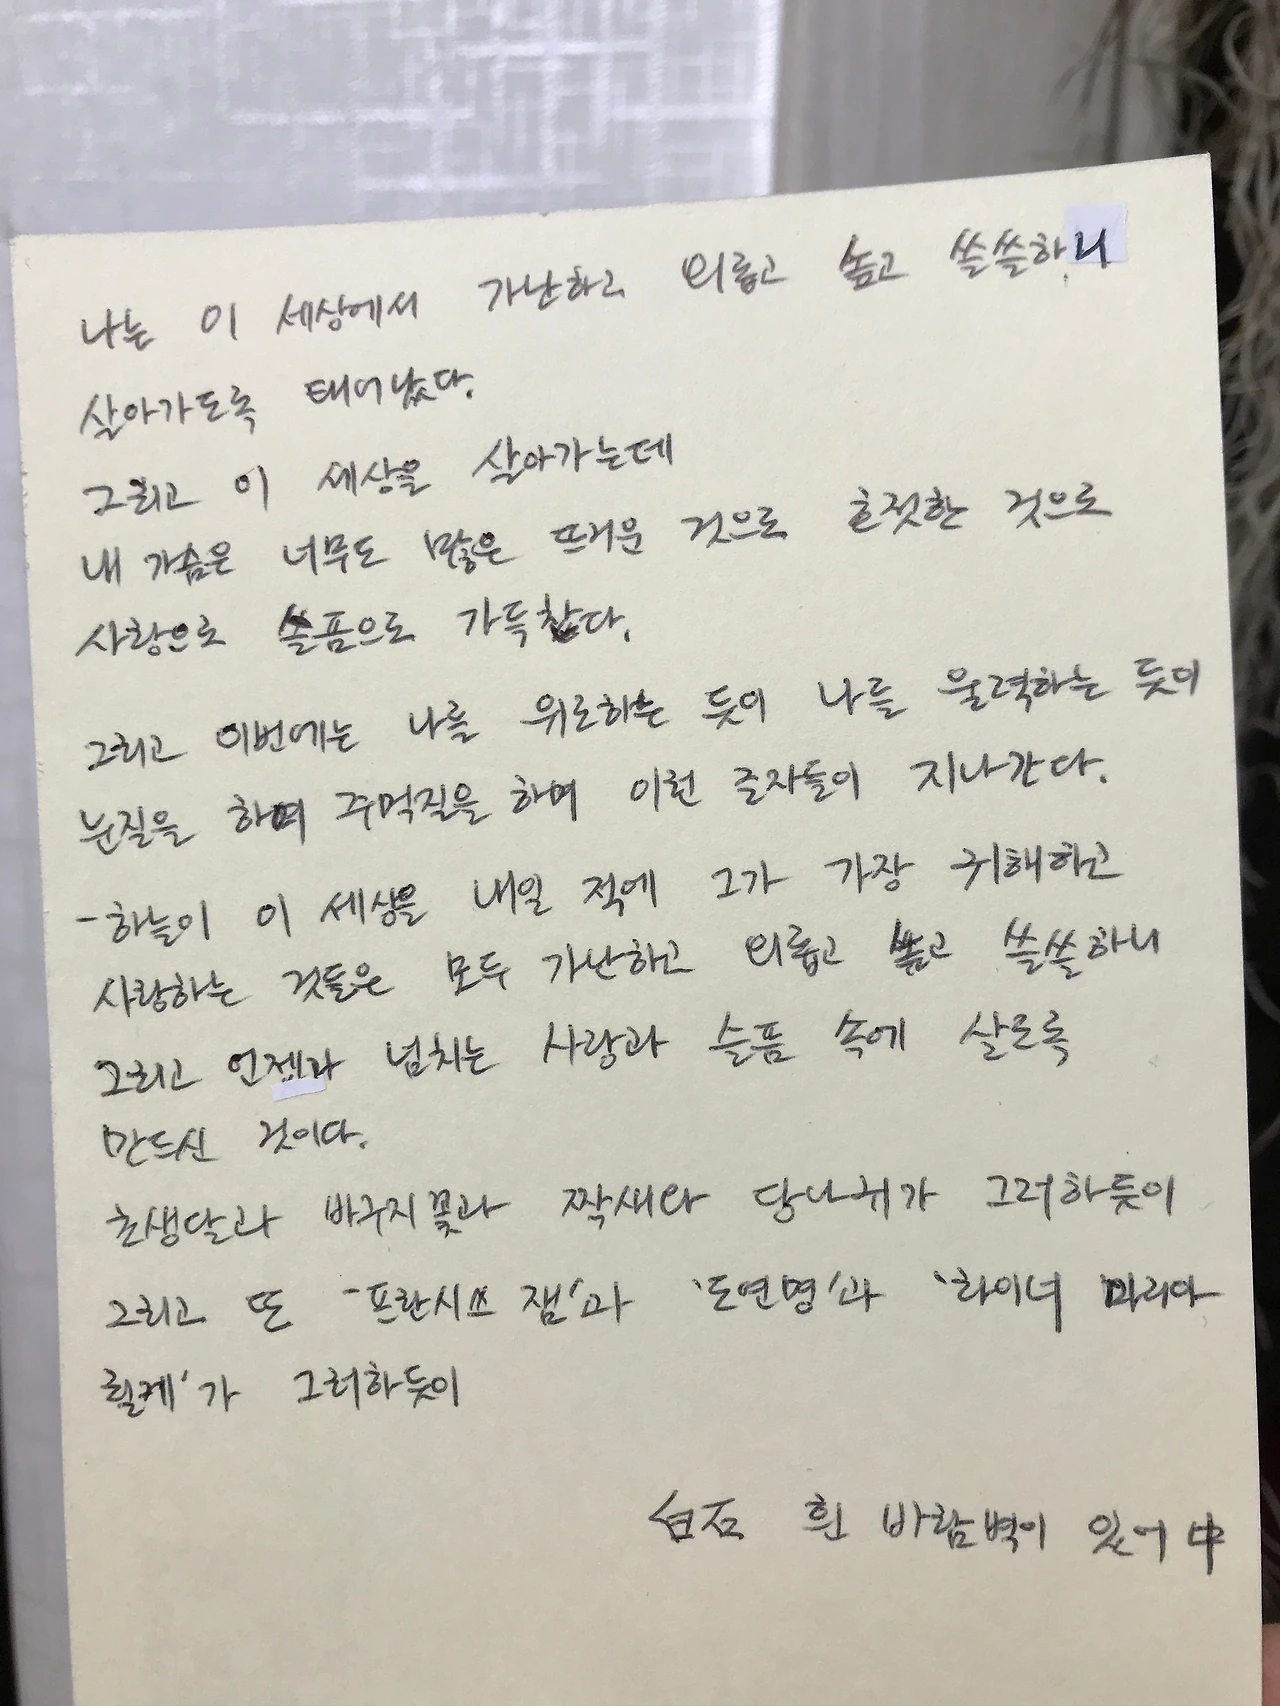 나는 이 세상에서 가난하고 외롭고 높고 쓸쓸하니
살아가도록 태어났다.
그리고 이 세상을 살아가는데
내 가슴은 너무도 많은 뜨거운 것으로 호젓한 것으로
사랑으로 슬픔으로 가득찹다.
그리고 이번에는 나를 위로하는 듯이 나를 울력하는 듯이
눈질을 하며 주먹질을 하며 이런 글자들이 지나간다.
-하늘이 이 세상을 내일 적에 그가 가장 귀해하고
사랑하는 것들은 모두 가난하고 외롭고 높고 쓸쓸하니
그리고 언제나 넘치는 사랑과 슬픔 속에 살도록
만드신 것이다.
초생달과 바구지꽃과 짝새와 당나귀가 그러하듯이
그리고 또 '프란시쓰 잼'과 '도연명'과 '라이너 마리아
릴케'가 그러하듯이
白石 흰 바람벽이 있어 中